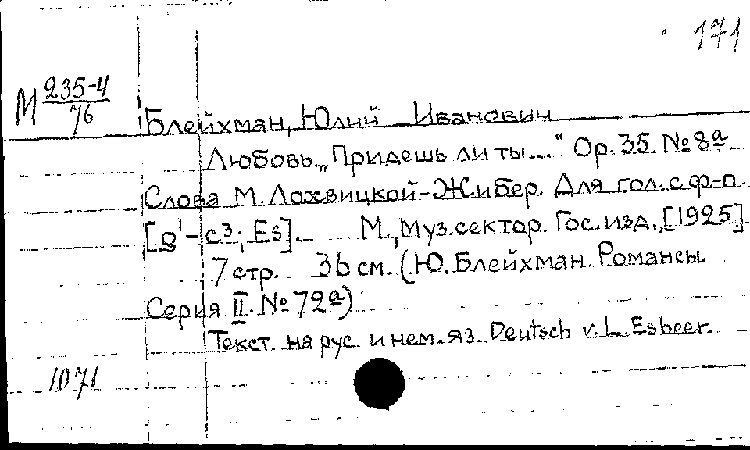 171
М 235-4
76
Блейхман, Юлий Иванович
Любовь. „Придешь ли ты..." Ор. 35. № 8а
Слова М. Лохвицкой-Жибер. Для гол. с ф-п.
[g¹-c3; Es]. М., Муз. сектор. Гос. изд., [1925]
7 стр. 36 см. (Ю. Блейхман. Романсы.
Серия II. № 72а)
Текст на рус. и нем. яз. Deutsch v. L. Esbeer.
1071